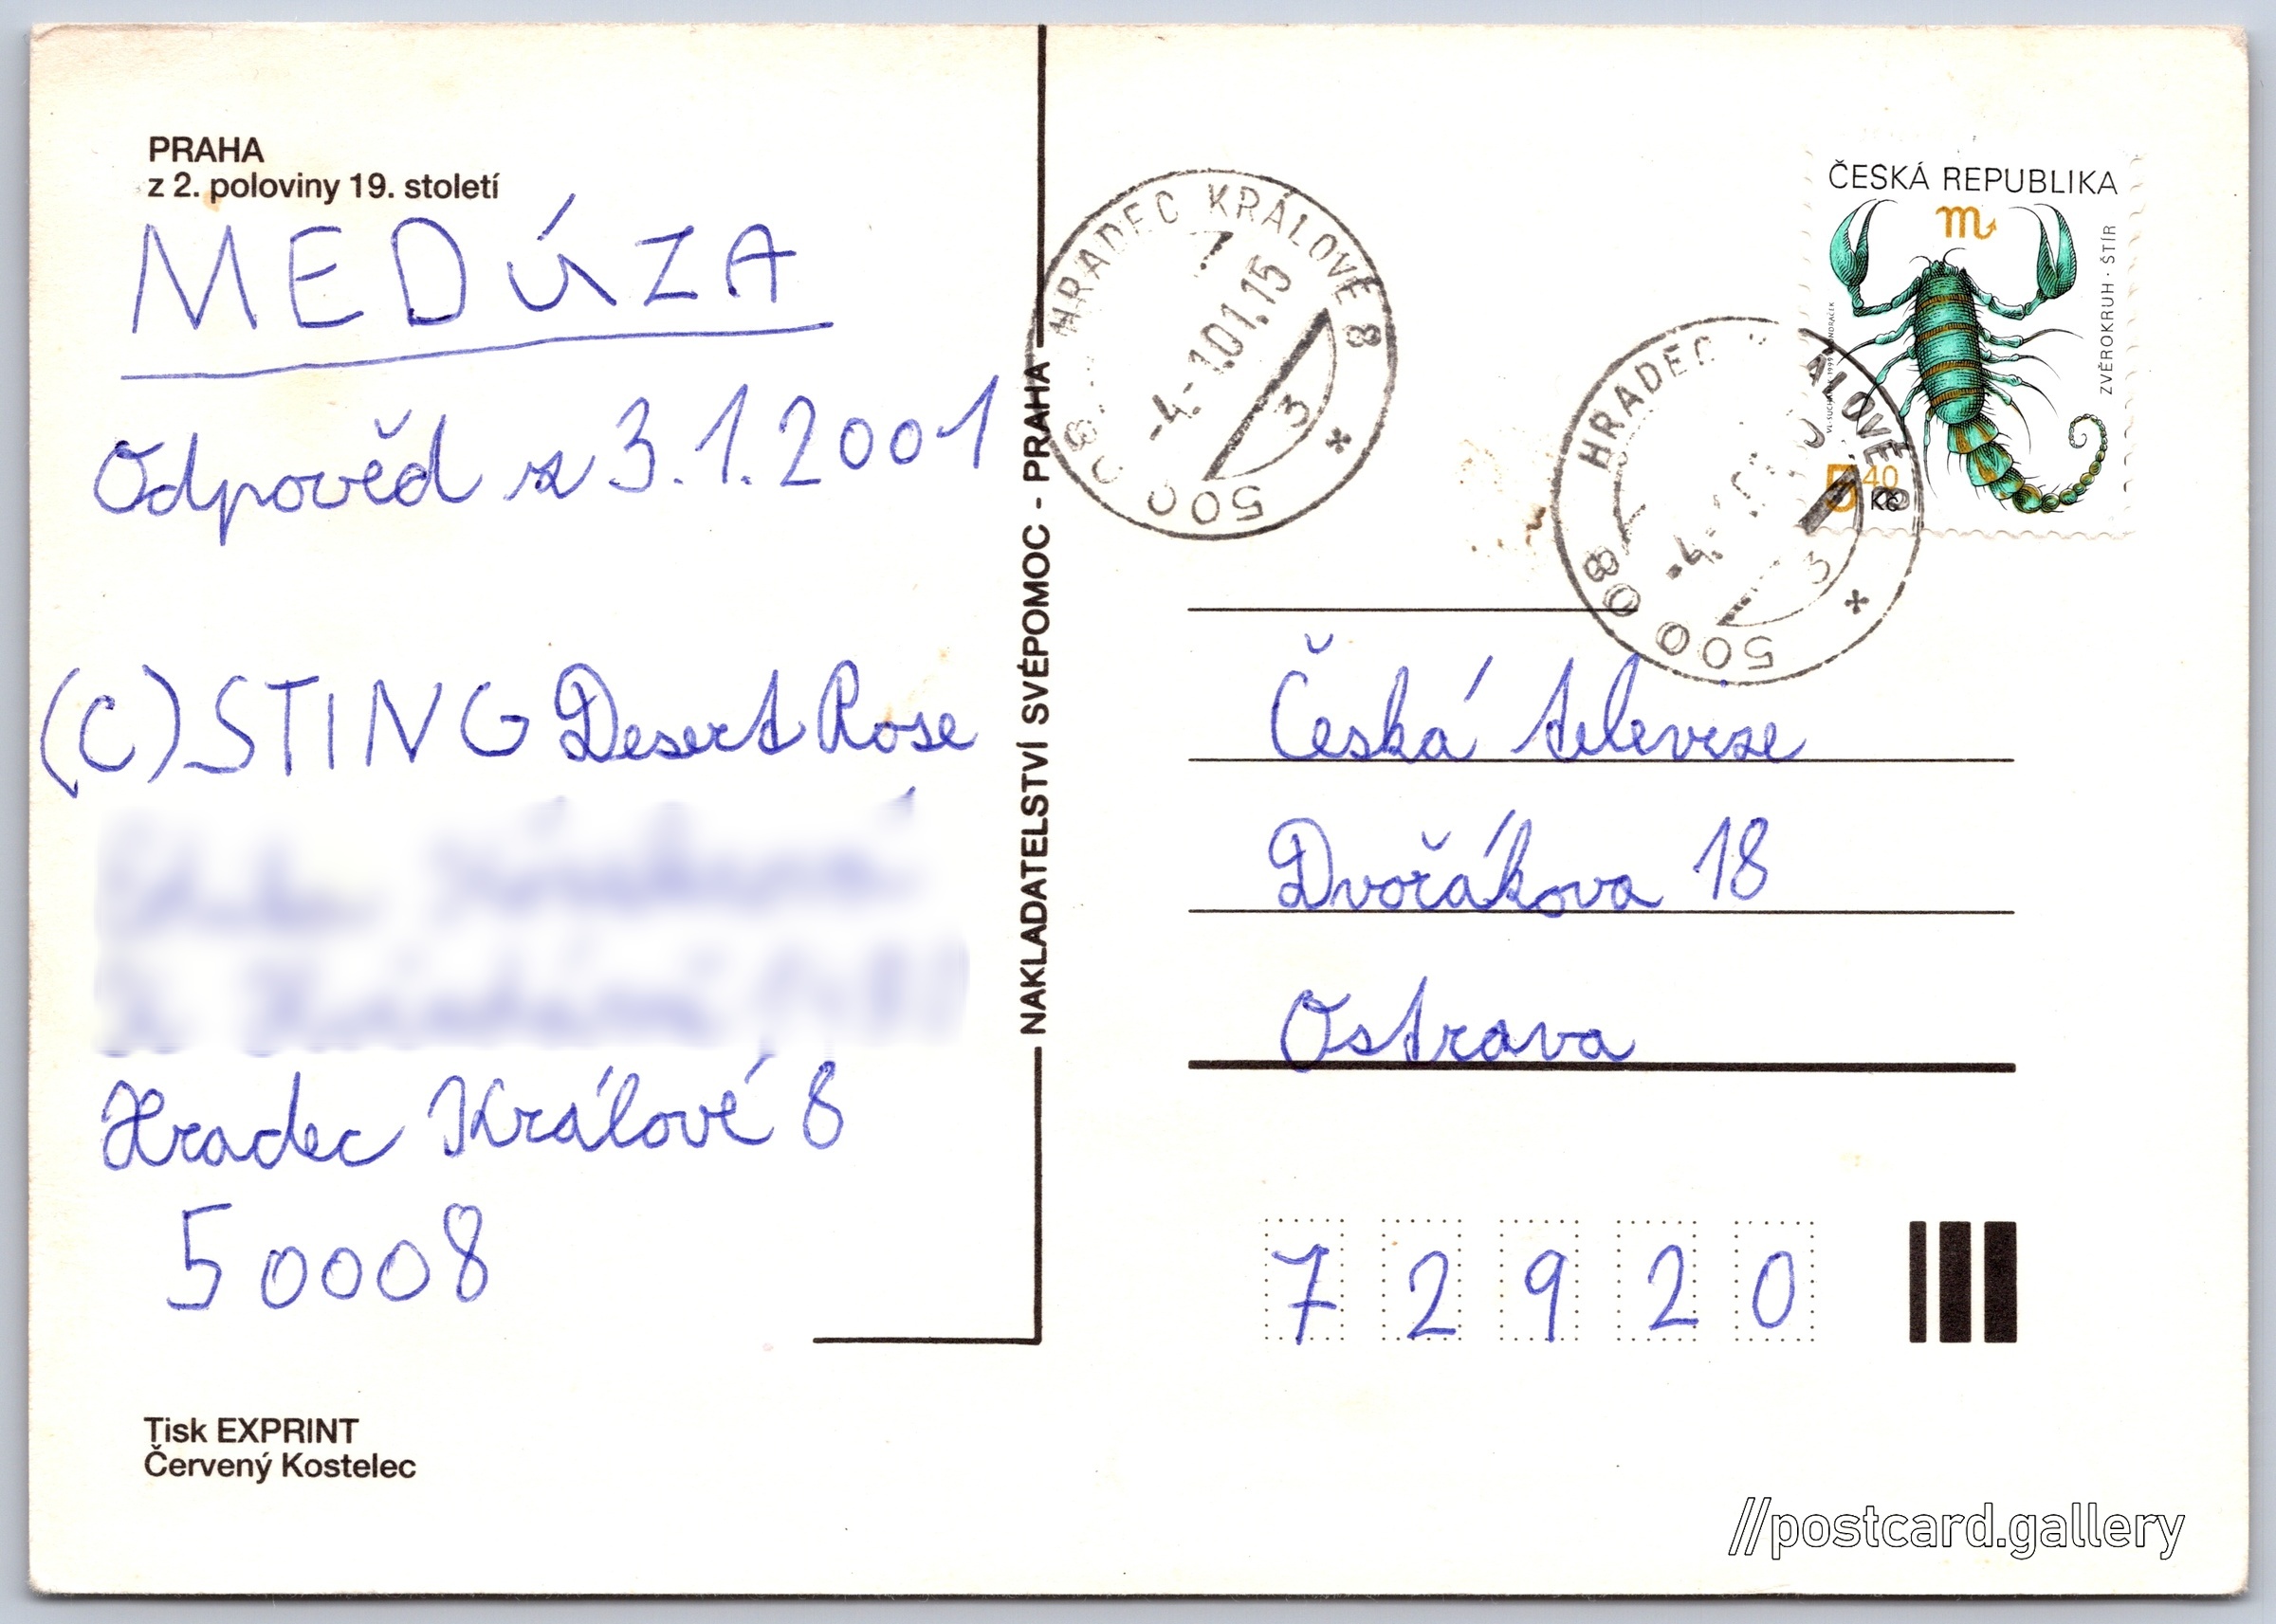 PRAHA
z 2. poloviny 19. století
MEDÚZA
Odpověd z 3.1.2001
(C) STING Desert Rose
Hradec Králové 8
50008
Tisk EXPRINT
Červený Kostelec
NAKLADATELSTVÍ SVÉPOMOC - PRAHA
HRADEC KRÁLOVÉ 8
-4.-1.01.15
3
500 08
ČESKÁ REPUBLIKA
ZVĚROKRUH · ŠTÍR
5 40
Kč
HRADEC KRÁLOVÉ 8
-4.
3
500 08
Česká televize
Dvořákova 18
Ostrava
72920
//postcard.gallery